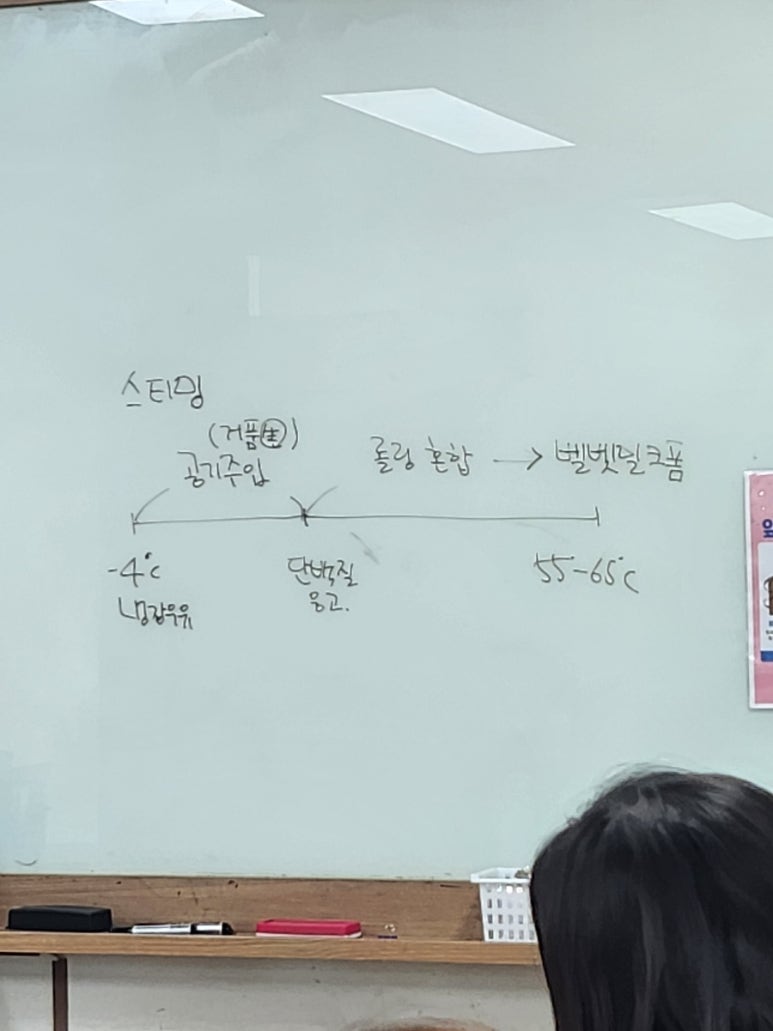 스티밍
(거품生)
공기주입
롤링 혼합 → 벨벳밀크폼
-4°C
냉장우유
단백질
응고.
55-65°C